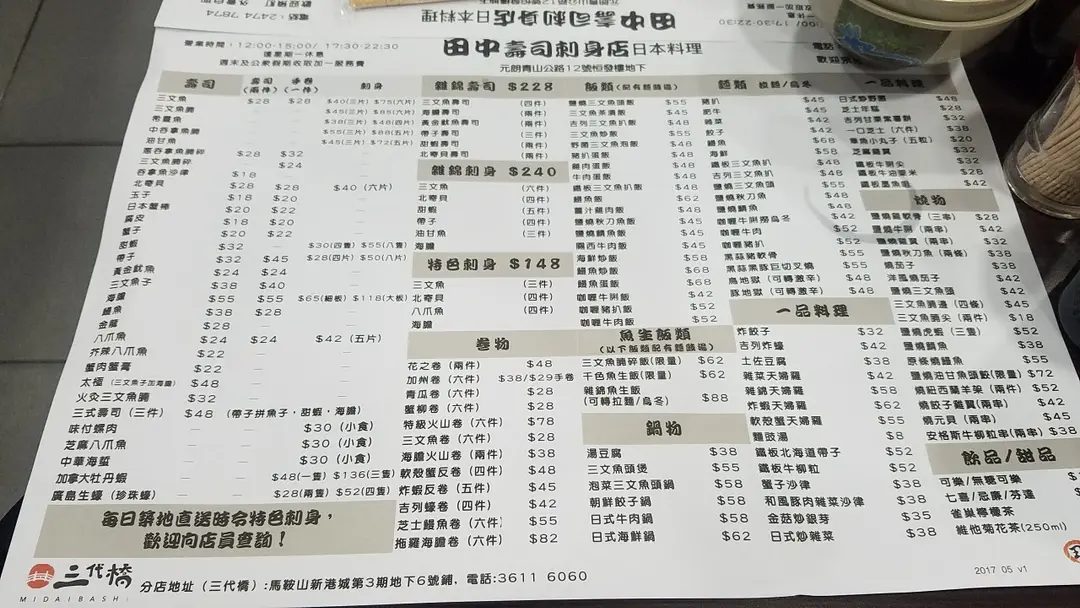 田中壽司刺身店日本料理
營業時間：12:00-15:00/ 17:30-22:30
逢星期一休息
週末及公衆假期收取加一服務費
元朗青山公路12號恒發樓地下
壽司
壽司（兩件）
手卷（一件）
刺身
三文魚 $28 $28 $40(三片) $75(六片)
三文魚腩
油甘魚
三文魚腩碎
吞拿魚沙律
北寄貝 $28 $28 $40（六片）
玉子
日本蟹棒
腐皮
蟹子 $20 $22
甜蝦 $32 — $30(四隻) $55(八隻)
帶子 $32 $45 $28(四片) $50(八片)
黃金魷魚 $24 $24
三文魚子 $38 $40
海膽 $55 $55 $65(細板) $118(大板)
鰻魚 $38 $28
八爪魚 $24 $24 $42（五片）
芥辣八爪魚 $22
蟹肉蟹膏 $22
太極（三文魚子加海膽） $48
火炙三文魚腩 $32
三式壽司（三件） $48 （帶子拼魚子，甜蝦，海膽）
味付螺肉 — — $30（小食）
芝麻八爪魚 — — $30（小食）
中華海蜇 — — $30（小食）
加拿大牡丹蝦 — — $48(一隻) $136(三隻)
廣島生蠔（珍珠蠔） — — $28(兩隻) $52(四隻)
每日築地直送時令特色刺身，
歡迎向店員查詢！
雜錦壽司 $228
三文魚壽司（四件）
海膽壽司（兩件）
黃金魷魚壽司（兩件）
帶子壽司（三件）
甜蝦壽司（兩件）
北寄貝壽司（兩件）
雜錦刺身 $240
三文魚（六件）
北寄貝（四件）
甜蝦（五件）
帶子（四件）
油甘魚（三件）
海膽
特色刺身 $148
三文魚（三件）
北寄貝（四件）
八爪魚（四件）
海膽
卷物
花之卷（兩件） $48
加州卷（六件） $38/$29手卷
青瓜卷（六件） $28
蟹柳卷（六件） $28
特級火山卷（六件） $78
三文魚卷（六件） $28
海膽火山卷（兩件） $38
軟殼蟹反卷（四件） $48
炸蝦反卷（五件） $45
吉列蠔卷（四件） $42
芝士鰻魚卷（六件） $55
拖羅海膽卷（六件） $82
飯類（配有麵豉湯）
鹽燒三文魚頭飯 $55
三文魚茶漬飯 $48
吉列三文魚扒飯 $48
三文魚炒飯 $55
野菌三文魚泡飯 $48
豬扒蛋飯 $48
雞肉蛋飯 $48
牛肉蛋飯 $48
鐵板三文魚扒飯 $48
鰻魚飯 $62
薑汁雞肉飯 $48
鹽燒鯖魚飯 $48
關西牛肉飯 $48
海鮮炒飯 $58
鰻魚炒飯 $68
鰻魚蛋飯 $68
咖喱牛脷飯 $42
咖喱豬扒飯 $52
咖喱牛肉飯 $52
魚生飯類
（以下飯類配有麵豉湯）
三文魚腩碎飯(限量) $62
千色魚生飯(限量) $62
雜錦魚生飯
（可轉拉麵/烏冬） $88
鍋物
湯豆腐 $38
三文魚頭煲 $55
泡菜三文魚頭鍋 $58
朝鮮餃子鍋 $58
日式牛肉鍋 $58
日式海鮮鍋 $62
麵類 拉麵/烏冬
豬扒 $45
肥牛 $45
雜菜 $42
餃子 $42
鰻魚 $68
海鮮 $58
鐵板三文魚扒 $48
吉列三文魚扒 $48
鹽燒三文魚頭 $55
鹽燒秋刀魚 $48
鹽燒鯖魚 $48
咖喱牛脷撈烏冬 $42
咖喱牛肉 $52
咖喱豬扒 $52
黑蒜豬軟骨 $55
黑蒜黑豚叉燒 $55
烏地獄（可轉激辛） $48
豚地獄（可轉激辛） $48
一品料理
炸餃子 $32
吉列炸蠔 $42
土佐豆腐 $38
雜菜天婦羅 $42
雜錦天婦羅 $58
炸蝦天婦羅 $62
軟殼蟹天婦羅 $55
麵豉湯 $8
鐵板北海道帶子 $52
鐵板牛柳粒 $52
蟹子沙律 $38
和風豚肉雜菜沙律 $38
金菇炒銀芽 $35
日式炒雜菜 $38
一品料理
日式炒野菌 $48
芝士年糕 $28
吉列甘栗紫薯餅 $32
一口芝士（六件） $38
章魚小丸子（五粒） $20
芝麻雞翼
鐵板牛脷尖
鐵板牛油粟米 $28
鐵板墨魚咀 $42
燒物
鹽燒雞軟骨（三串） $28
鹽燒牛脷（兩串） $42
鹽燒雞翼（兩串） $32
鹽燒秋刀魚（兩條） $38
燒茄子 $38
洋風燒茄子 $38
鹽燒三文魚頭 $42
三文魚腩邊（四條） $45
三文魚腩尖（兩件） $18
鹽燒虎蝦（三隻） $52
鹽燒鯖魚 $38
原條燒鰻魚 $55
鹽燒油甘魚頭(限量) $72
燒紐西蘭羊架（兩件） $52
燒餃子雞翼(兩串) $42
燒元貝（兩串） $45
安格斯牛柳粒串(兩串) $38
飲品/甜品
可樂/無糖可樂
七喜/忌廉/芬達
雀巢檸檬茶
維他菊花茶(250ml)
三代橋
MIDAIBASHI
分店地址（三代橋）:馬鞍山新港城第3期地下6號鋪，電話:3611 6060
2017 05 v1